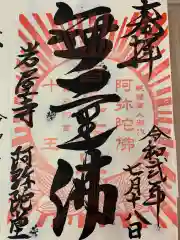 奉拝
令和弐年
七月十八日
阿弥陀佛
無量佛
十王
岩屋寺
阿弥陀堂